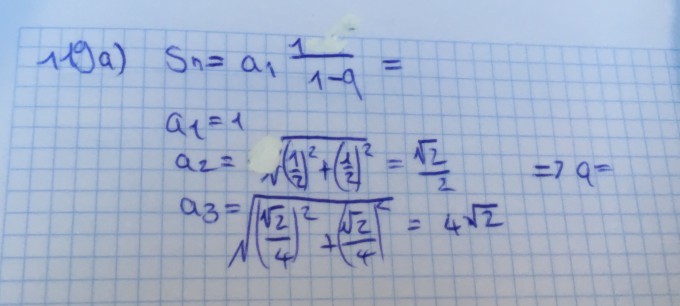 119a) Sn = a₁ 1/(1-q) =
a₁ = 1
a₂ = √((1/2)² + (1/2)²) = √2/2 => q =
a₃ = √((√2/4)² + (√2/4)²) = 4√2